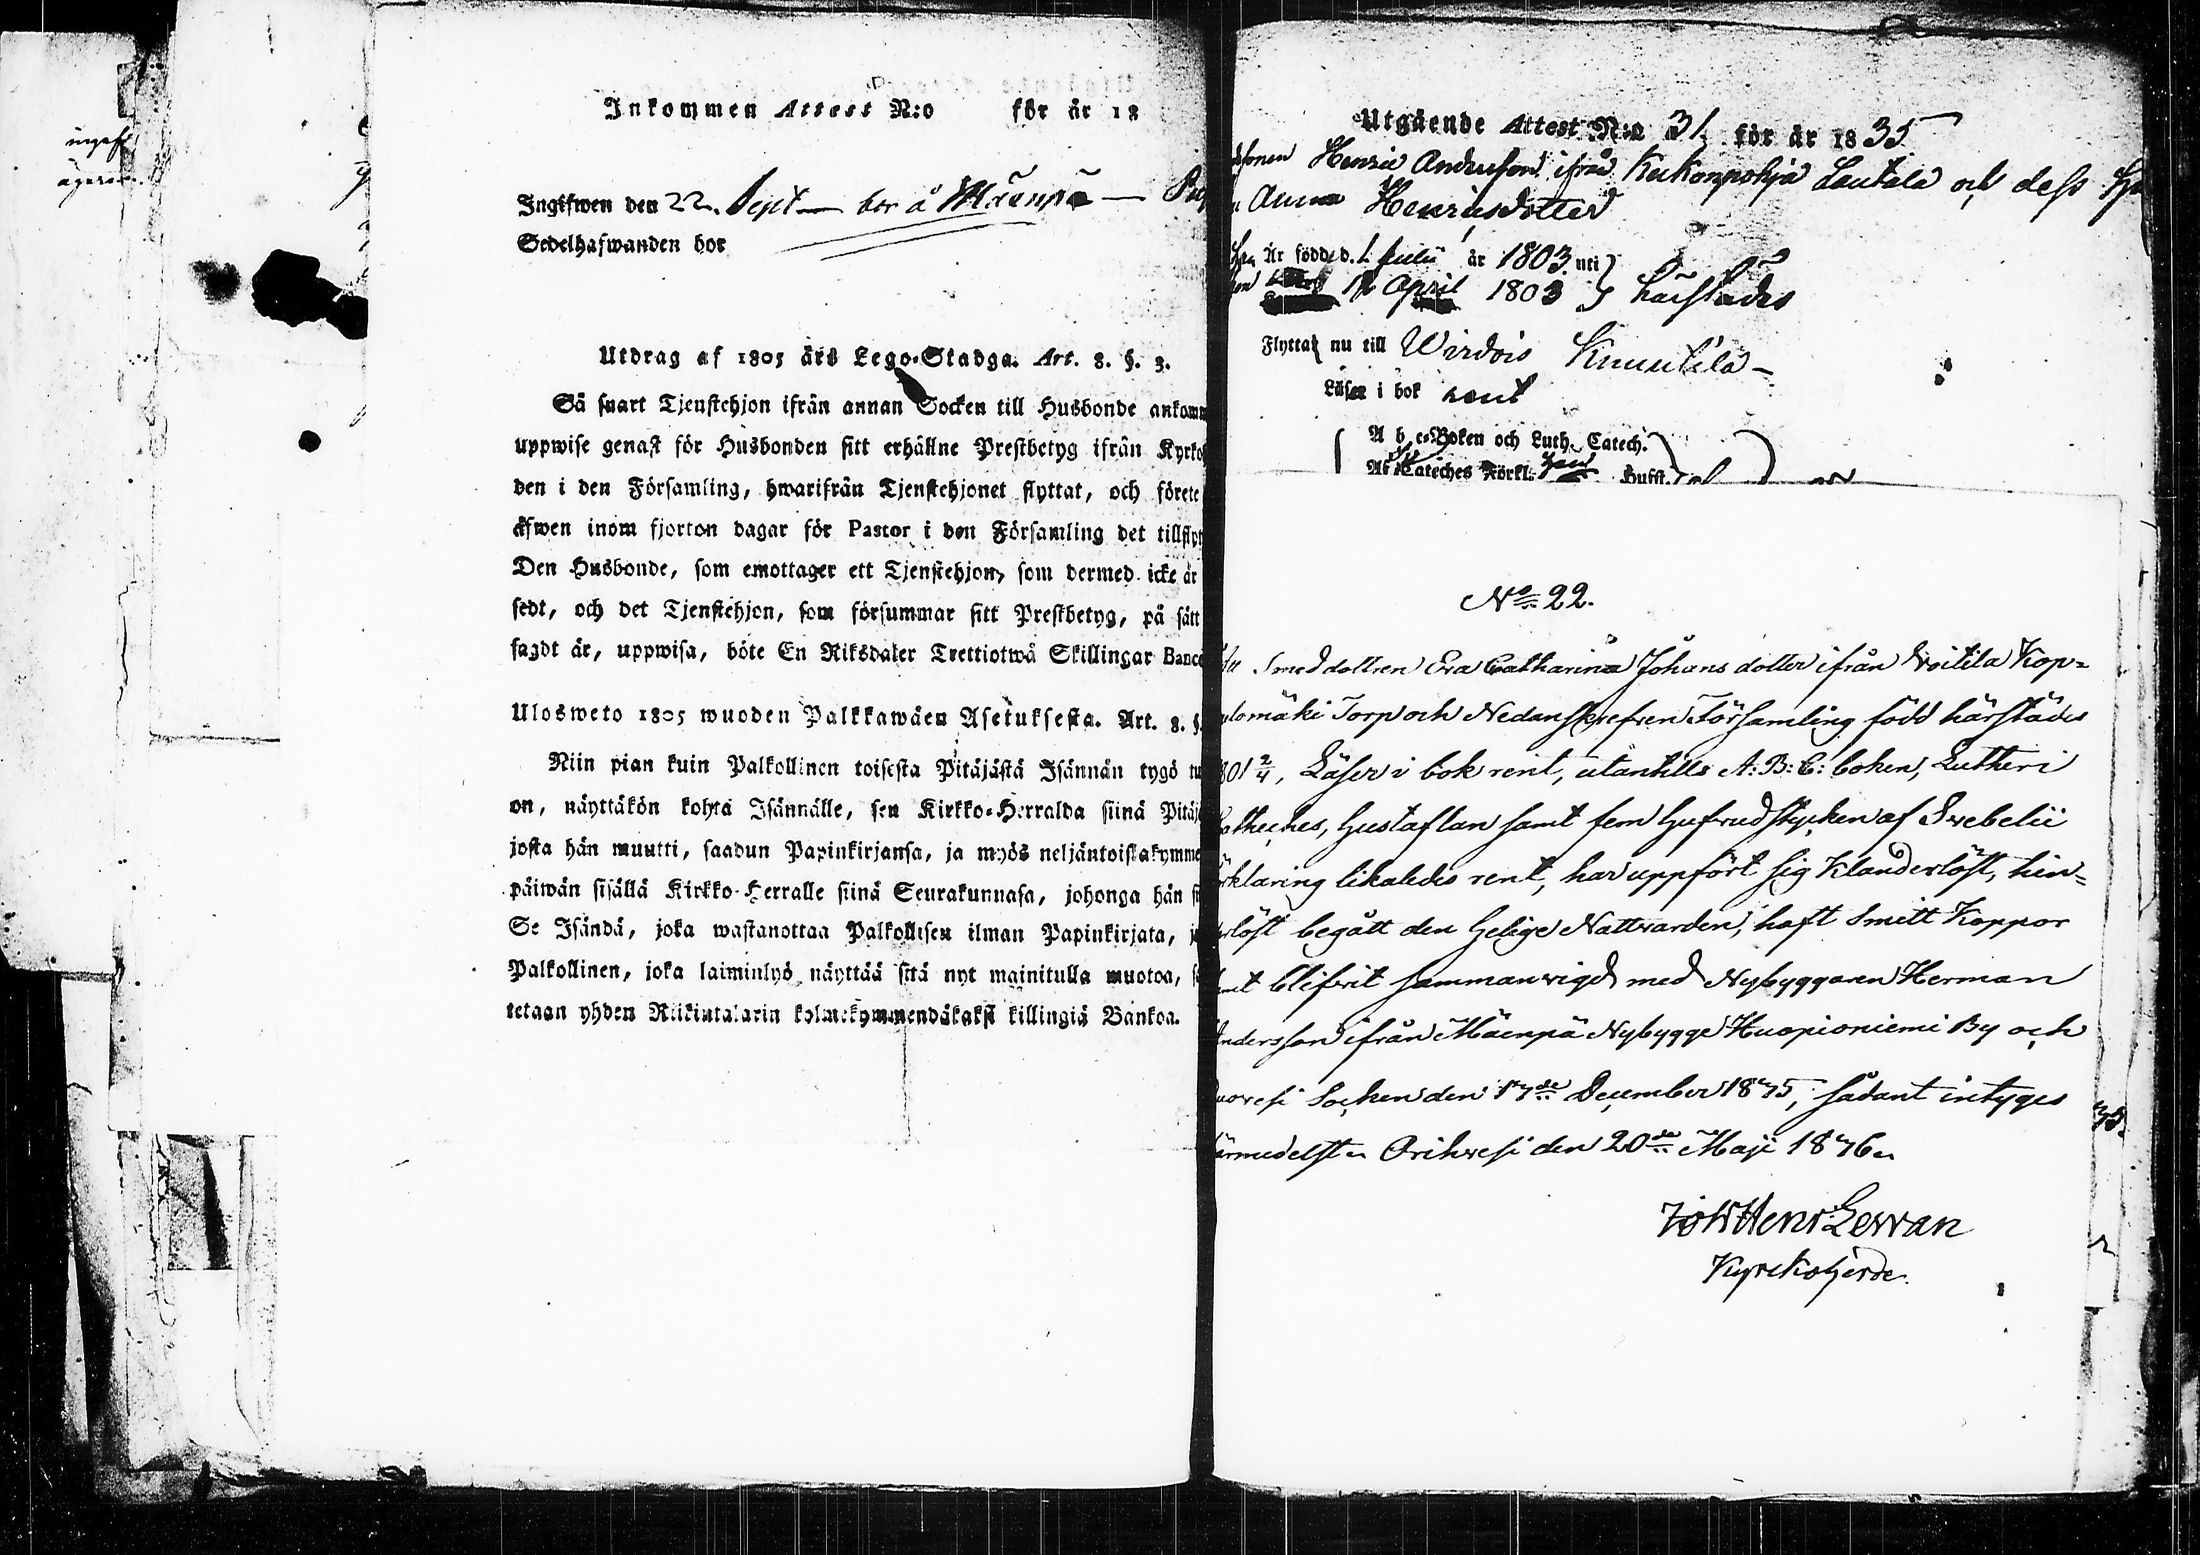 Inkommen Attest N:o för år 18
Ingifwen den 22 Sept bor å Mäenpä
Sedelhafwanden bor
Utdrag af 1805 års Lego-Stadga. Art. 8. §. 3.
Så snart Tjenstehjon ifrån annan Socken till Husbonde ankom
uppwise genast för Husbonden sitt erhållne Prestbetyg ifrån Kyrko
den i den Församling, hwarifrån Tjenstehjonet flyttat, och förete
äfwen inom fjorton dagar för Pastor i den Församling det tillflyt
Den Husbonde, som emottager ett Tjenstehjon, som dermed icke är
sedt, och det Tjenstehjon, som försummar sitt Prestbetyg, på sätt
sagdt är, uppwisa, böte En Riksdaler Trettiotwå Skillingar Banco
Ulosweto 1805 wuoden Palkkawäen Asetuksesta. Art. 8. §.
Niin pian kuin Palkollinen toisesta Pitäjästä Isännän tygö tu
on, näyttäkön kohta Isännälle, sen Kirkko-Herralda siinä Pitäj
josta hän muutti, saadun Papinkirjansa, ja myös neljäntoistakymme
päiwän sisällä Kirkko-Herralle siinä Seurakunnasa, johonga hän si
Se Isändä, joka wastanottaa Palkollisen ilman Papinkirjata, j
Palkollinen, joka laiminlyö näyttää sitä nyt mainitulla muotoa, s
tetaan yhden Riikintalarin kolmekymmendäkaksi killingiä Bankoa.
Utgående Attest N:o 31 för år 1835
Henric Andersson ifrån Kukonpohja Lautala och dess
Anna Henricsdotter
Är född d. 1 Julii år 1803 uti
April 1803 härstädes
Flyttar nu till Wirdois Knuutila
Läser i bok rent
A b c-Boken och Luth. Catech.
Af Cateches Förkl. Hufst.
No 22.
Smeddottren Eva Catharina Johansdotter ifrån Voitila Kop=
lomäki Torp och Nedanskrefven Församling född härstädes
801 2/4, Läser i bok rent, utantills A:B:C: boken, Lutheri
atheches, Hustaflan samt fem Hufvudstycken af Svebelii
rklaring likaledes rent, har uppfört sig Klanderlöst, hin=
rlöst begått den Helige Nattvarden, haft Smitt Koppor
mt blifvit sammanvigd med Nybyggaren Herman
ndersson ifrån Mäenpä Nybygge Huopioniemi By och
uovesi Socken den 17de December 1845, sådant intyges
ärmedelst Orihvesi den 20de Maji 1846
Joh Henr Levan
Kyrkoherde.